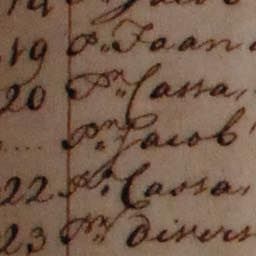 19 Pr. Joan
20 Pr. Cassa
.... Pr. Jacob
22 Pr. Cassa
23 Pr. divers